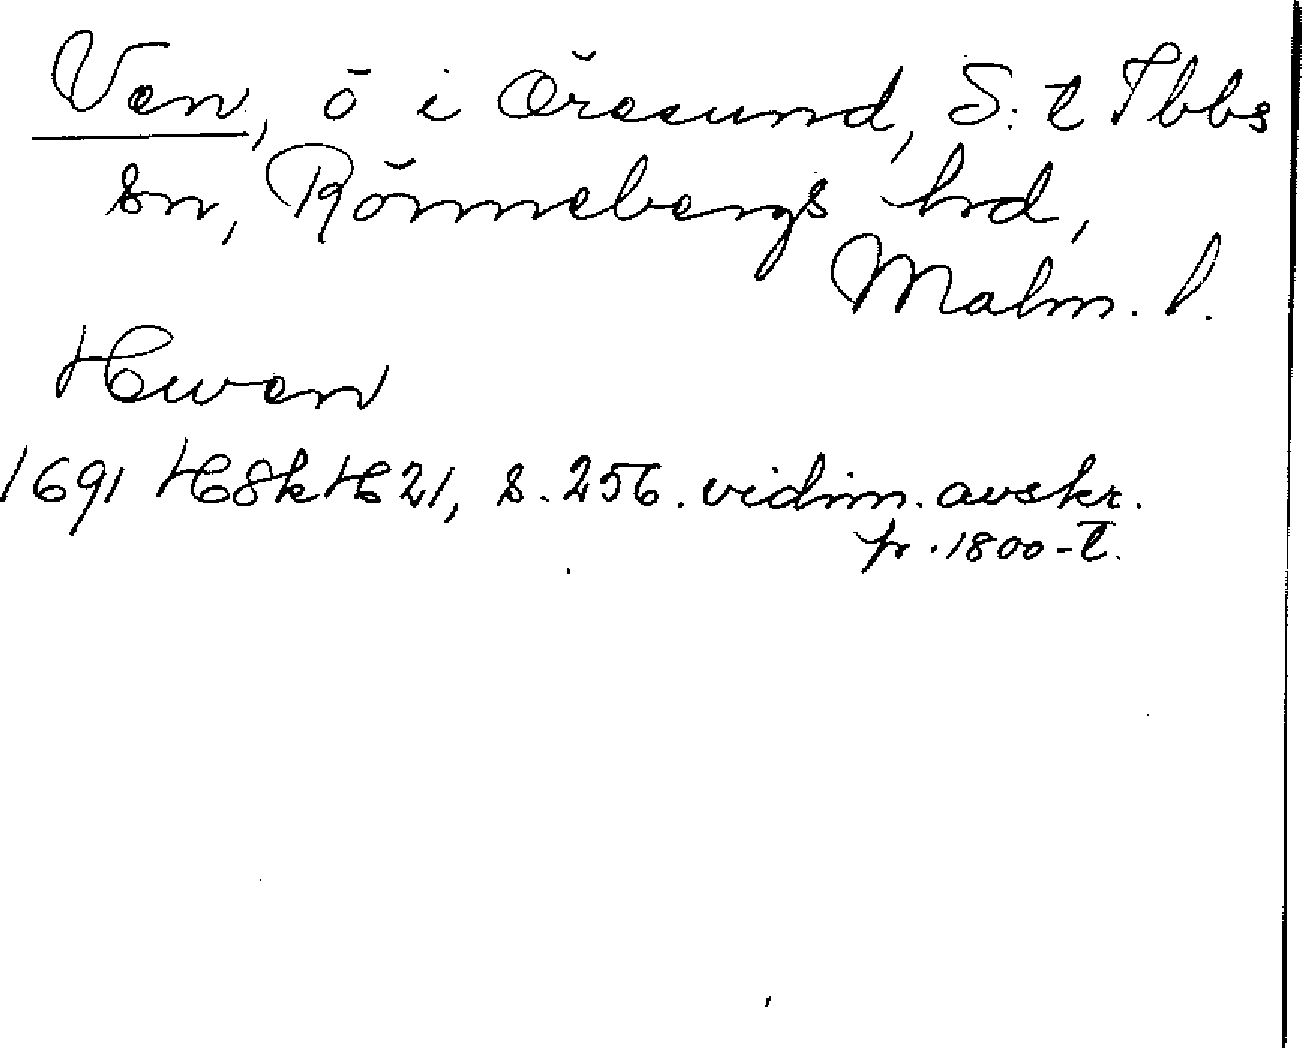 Ven, ö i Öresund, S:t Ibbs
sn, Rönnebergs hd,
Malm. l.
Hwen
1691 HSkH 21, s. 256. vidim. avskr.
fr. 1800-t.